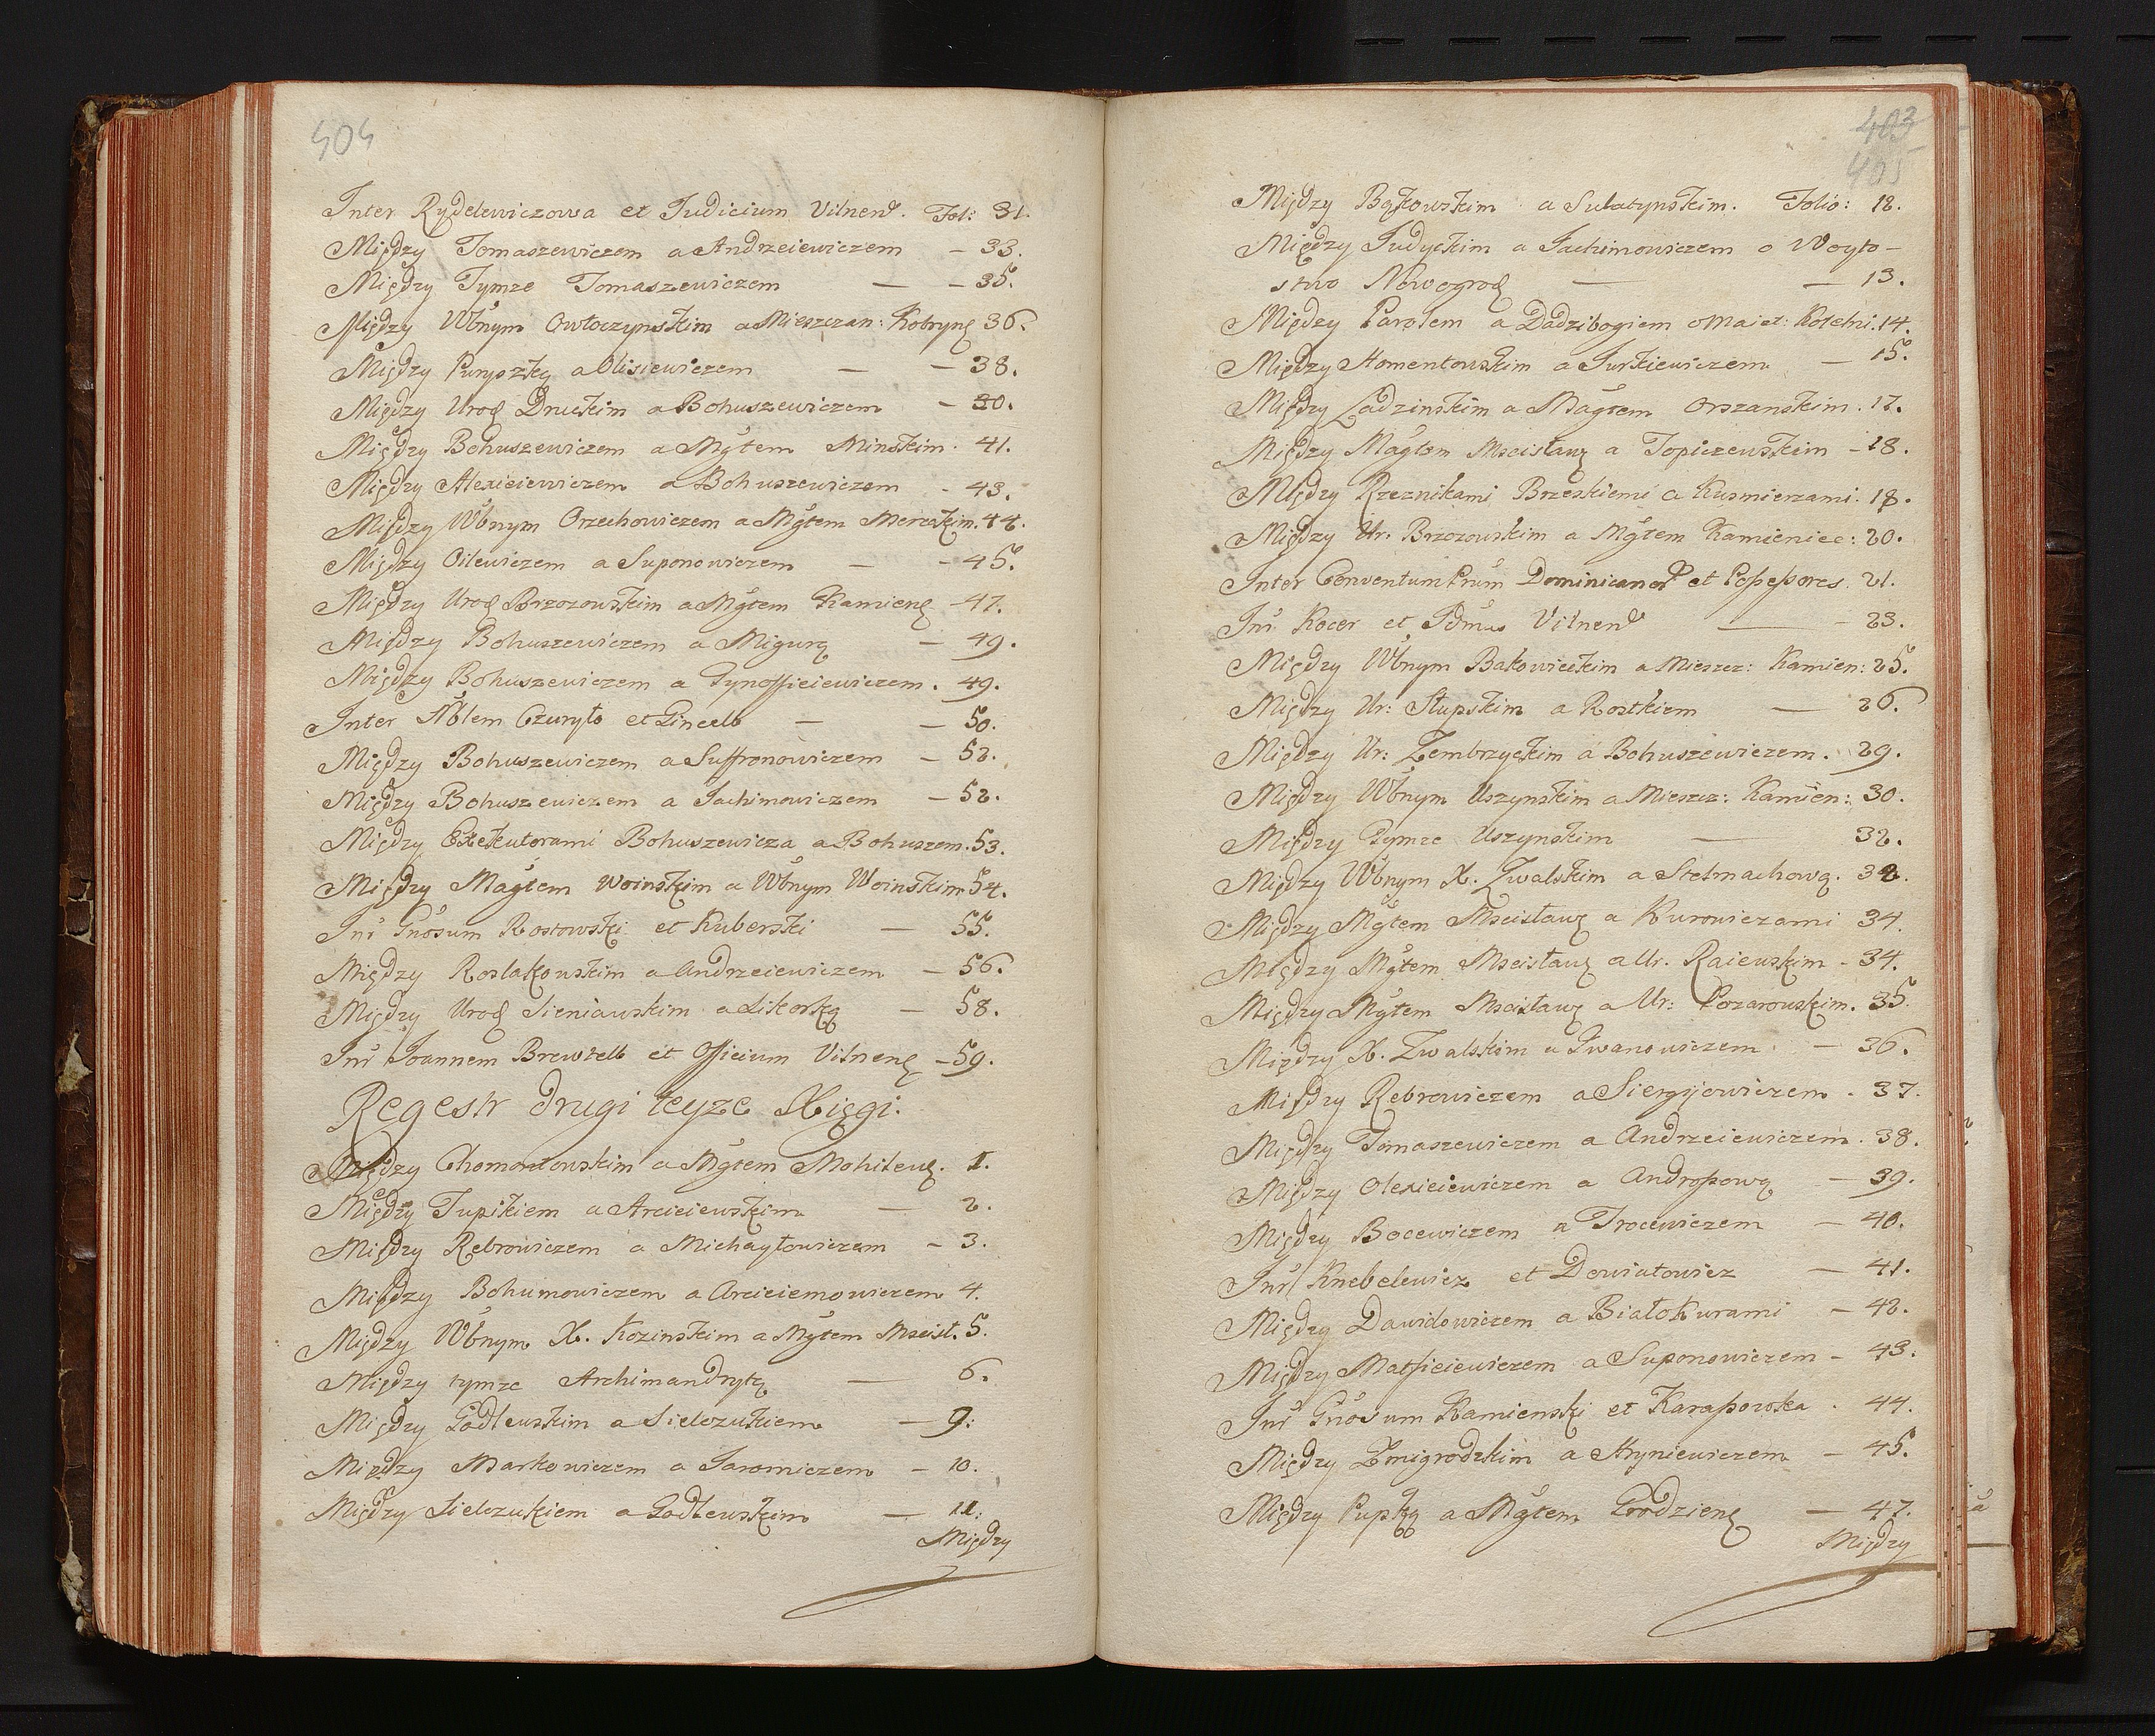 404
Inter Rydelewiczowa et Judicium Vilnen. Fol: 31.
Między Tomaszewiczem a Andrzeiewiczem — 33.
Między Tymze Tomaszewiczem — — 35.
Między Wbnym Owłoczynskim a Mieszczan: Kobryn 36.
Między Puryszką a Olisiewiczem — — 38.
Między Urod Druckim a Bohuszewiczem — 30.
Między Bohuszewiczem a Mgtem Minskim. 41.
Między Alexieiewiczem a Bohuszewiczem - 43.
Między Wbnym Orzechowiczem a Mgtem Mereckim. 44.
Między Oilewiczem a Suponowiczem — - 45.
Między Urod Brzozowskim a Mgtem Kamien — 47.
Między Bohuszewiczem a Migurą — 49.
Między Bohuszewiczem a Tynofieiewiczem. 49.
Inter Nblem Czuryło et Lincelb — — 50.
Między Bohuszewiczem a Suffronowiczem — 52.
Między Bohuszewiczem a Jachimowiczem — 52.
Między Exekutorami Bohuszewicza a Bohuszem. 53.
Między Magtem Woinskim a Wbnym Woinskim 54.
Inr Gnosum Rostowski et Kuberski — 55.
Między Roslakowskim a Andrzeiewiczem — 56.
Między Urod Sieniawskim a Sikorką — 58.
Inr Joannem Brewtelb et Officium Vilnen — 59.
Regestr drugi teyze Xięgi.
Między Chomontowskim a Mgtem Mohilew. 1.
Między Tupikiem a Arcieiewskim — 2.
Między Rebrowiczem a Michayłowiczem — 3.
Między Bohumowiczem a Arcieiemowiczem 4.
Między Wbnym X. Kozinskim a Mgtem Mscisł. 5.
Między tymze Archimandrytą — 6.
Między Godlewskim a Sielczukiem — 9.
Między Markowiczem a Jaromiczem — 10.
Między Sielczukiem a Godlewskim — 11.
Między
403
405
Między Bąkowskim a Sulatynskim. Folio: 12.
Między Judyckim a Jachimowiczem o Woyto-
stwo Nowogrod — — 13.
Między Pawłem a Dadzibogiem o Maięt: Kotelni. 14.
Między Homentowskim a Jurkiewiczem — 15.
Między Ladzinskim a Magtem Orszanskim. 17.
Między Magtem Mscisław a Topiczewskim - 18.
Między Rzeznikami Brzeskiemi a Kusmierzami. 18.
Między Ur. Brzozowskim a Mgtem Kamieniec: 20.
Inter Conventum Prum Dominicanor et Possessores. 21.
Inr Kocer et Pdmus Vilnen — - 23.
Między Wbnym Bakowieckim a Mieszcz: Kamien: 25.
Między Ur: Słupskim a Rostkiem — 26.
Między Ur: Zembrzyckim a Bohuszewiczem. 29.
Między Wbnym Uszynskim a Mieszcz: Kamien: 30.
Między Tymze Uszynskim — 32.
Między Wbnym X. Zwalskim a Stelmachową. 32.
Między Mgtem Mscisław a Kurowiczami 34.
Między Mgtem Mscisław a Ur. Raiewskim - 34.
Między Mgtem Mscisław a Ur: Pozarowskim. 35.
Między X. Zwalskim a Iwanowiczem — 36.
Między Rebrowiczem a Siergijewiczem. 37.
Między Tomaszewiczem a Andrzeiewiczem. 38.
Między Olexieiewiczem a Androssową — 39.
Między Bocewiczem a Trocewiczem — 40.
Inr Knebelewicz et Dowiatowicz — 41.
Między Dawidowiczem a Białokurami — 42.
Między Matfieiewiczem a Suponowiczem — 43.
Inr Gnosum Kamienski et Karassowska. 44.
Między Zmigrodzkim a Hryniewiczem — 45.
Między Pupką a Mgtem Grodzien — 47.
Między